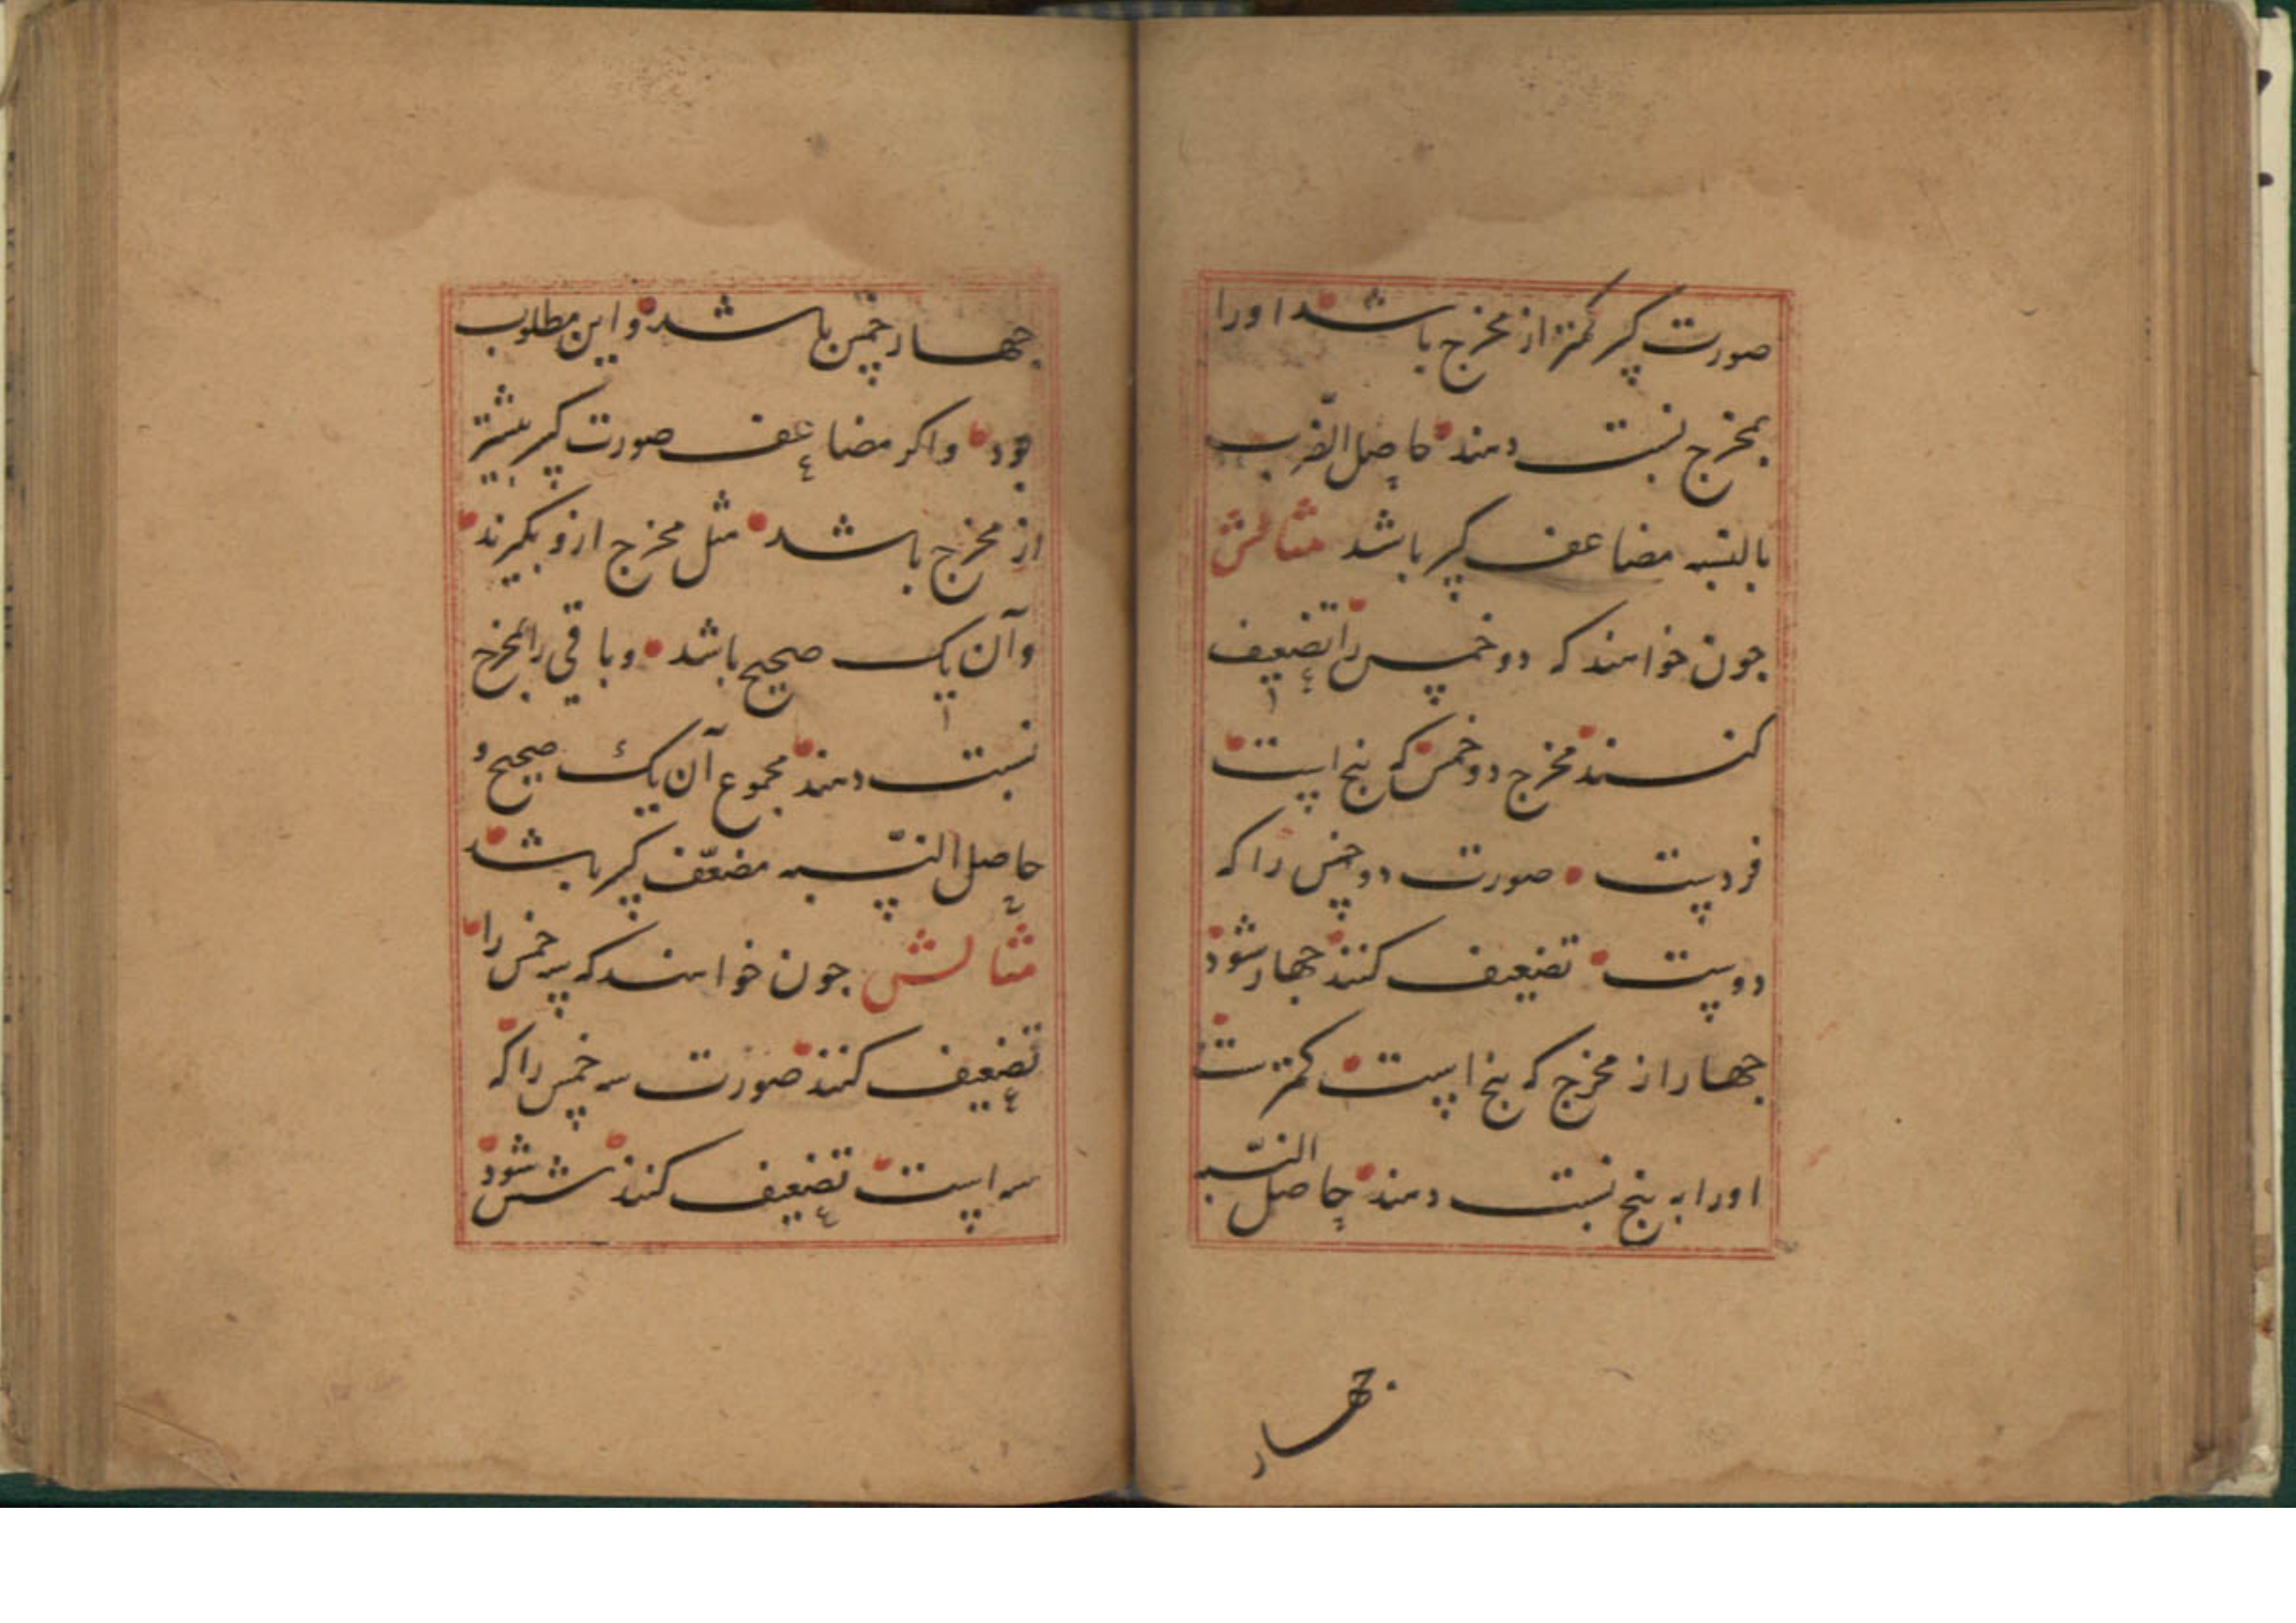 صورت کسر کمتر از مخرج باشد اورا
بمخرج نسبت دهند حاصل الضرب
بالنسبه مضاعف کسر باشد مثالش
جون خواهند که دو خمس را تضعیف
کنند مخرج دو خمس که پنج است
فردست صورت دو خمس را که
دوست تضعیف کنند جهار شود
جهار از مخرج که پنج است کمترست
اورا به پنج نسبت دهند حاصل النسبه
جهار
جهار خمس باشد و این مطلوب
بود واکر مضاعف صورت کسر بیشتر
از مخرج باشد مثل مخرج ازو بکیرند
وآن یک صحیح باشد وباقی را بمخرج
نسبت دهند مجموع آن یک صحیح و
حاصل النسبه مضعّف کسر باشد
مثالش جون خواهند که سه خمس را
تضعیف کنند صورت سه خمس را که
سه است تضعیف کنند شش شود